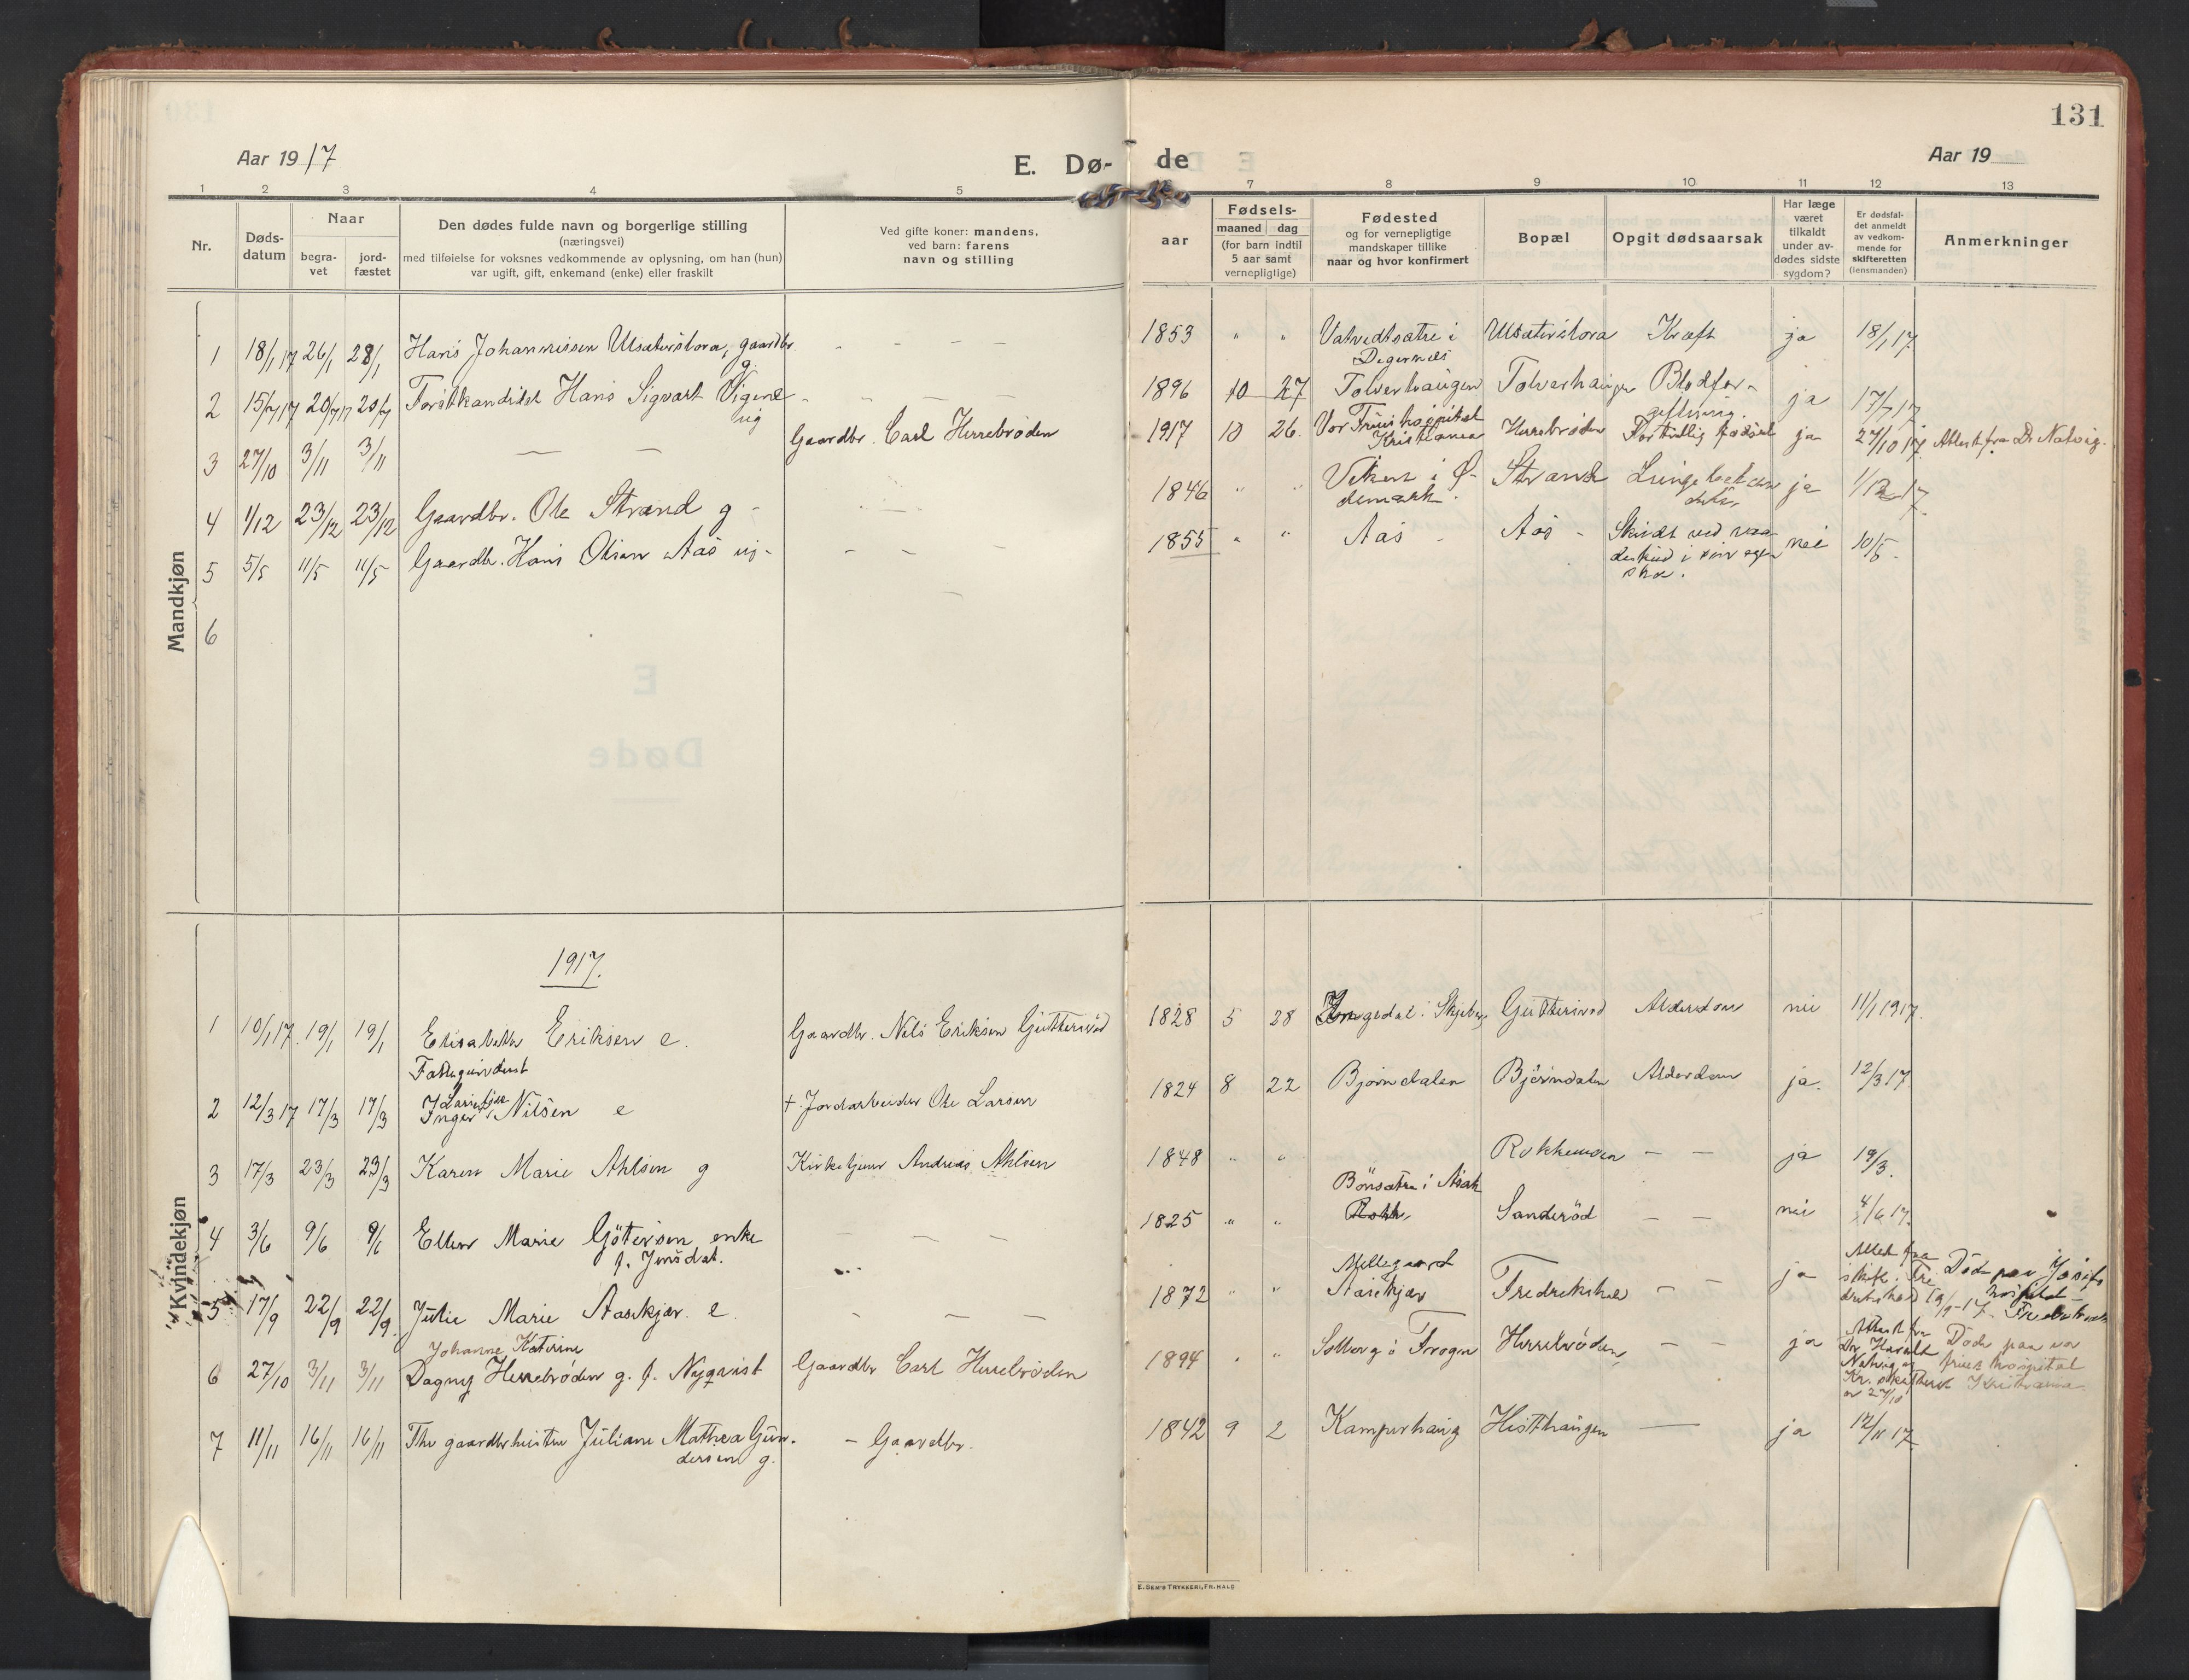 131
Aar 1917
E. Dø-
de
Aar 19
1 2 3 4 5 7 8 9 10 11 12 13
Nr.
Døds-
datum
Naar
begra-
vet
jord-
fæstet
Den dødes fulde navn og borgerlige stilling
(næringsvei)
med tilføielse for voksnes vedkommende av oplysning, om han (hun)
var ugift, gift, enkemand (enke) eller fraskilt
Ved gifte koner: mandens,
ved barn: farens
navn og stilling
aar
Fødsels-
maaned dag
(for barn indtil
5 aar samt
vernepligtige)
Fødested
og for vernepligtige
mandskaper tillike
naar og hvor konfirmert
Bopæl
Opgit dødsaarsak
Har læge
været
tilkaldt
under av-
dødes sidste
sygdom?
Er dødsfal-
det anmeldt
av vedkom-
mende for
skifteretten
(lensmanden)
Anmerkninger
Mandkjøn
1 18/1 17 26/1 28/1 Hans Johannissen Ulsæterstora, gaardbr g. - - - - 1853 " " Vatvedtsætre i Degernes Ulsæterstora Kræft ja 18/1 17
2 15/7 17 20/7 17 20/7 Forstkandidat Hans Sigvart Vigene ug - - - - 1896 10 27 Tolverhaugen Tolverhaugen Blodfor- giftning. ja 17/7 17
3 27/10 3/11 3/11 — — Gaardbr. Carl Herrebrøden 1917 10 26 Vor Frues hospital Kristiania Herrebrøden For tidlig fødsel ja 27/10 17 Attest fra Dr Natvig.
4 1/12 23/12 23/12 Gaardbr. Ole Strand g - 1846 " " Viken i Ø- demark. Strand Lungebetæn- delse ja 1/12 17
5 5/5 11/5 11/5 Gaardbr. Hans Olsen Aas ug - - - - 1855 " " Aas - Aas - Skudt ved vaa- deskud i sin egen skog. nei 10/5.
6
E
Døde
Kvindekjøn
1917.
1 10/1 17. 19/1 19/1 Elisabeth Eriksen e. Gaardbr. Nils Eriksen Gutterød 1828 5 28 Ingedal i Skjeberg Gutterød Alderdom nei 11/1 1917.
Fattigunderst
2 12/3 17 17/3 17/3 Inger Nilsen e † Jordarbeider Ole Larsen 1824 8 22 Bjørndalen Bjørndalen Alderdom ja. 12/3 17
3 17/3 23/3 23/3 Karen Marie Ahlsen g Kirketjener Andreas Ahlsen 1848 " " Rokkemoen — — ja 19/3.
4 3/6 9/6 9/6 Ellen Marie Götersen enke f. Jensdat. — — — 1825 " " Bönsætre i Asak Rokke Sanderöd — — nei 4/6 17.
5 17/9 22/9 22/9. Julie Marie Aaserkjær. e. — — — 1872 " " Møllegaard Aaserkjær Fredrikshald — — ja Attest fra skift. i Fre drikshald 19/9-17. Død paa Josefs hospital - Fredrikshald
Johanne Katerine
6 27/10 3/11 3/11 Dagny Herrebrøden g. f. Nyqvist Gaardbr Carl Herrebrøden 1894 " " Solberg i Trøgn Herrebrøden, — — ja Attest fra Dr. Harald Natvig og Kr. skifteret av 27/10 Død paa vor frues hospital Kristiania
7 11/11 16/11 16/11 Fhv gaardbrhustru Juliane Mathea Gun- dersen g. - Gaardbr. 1842 9 2 Kamperhaug Hesthaugen — ja 12/11 17
E. SEM'S TRYKKERI, FR.HALD